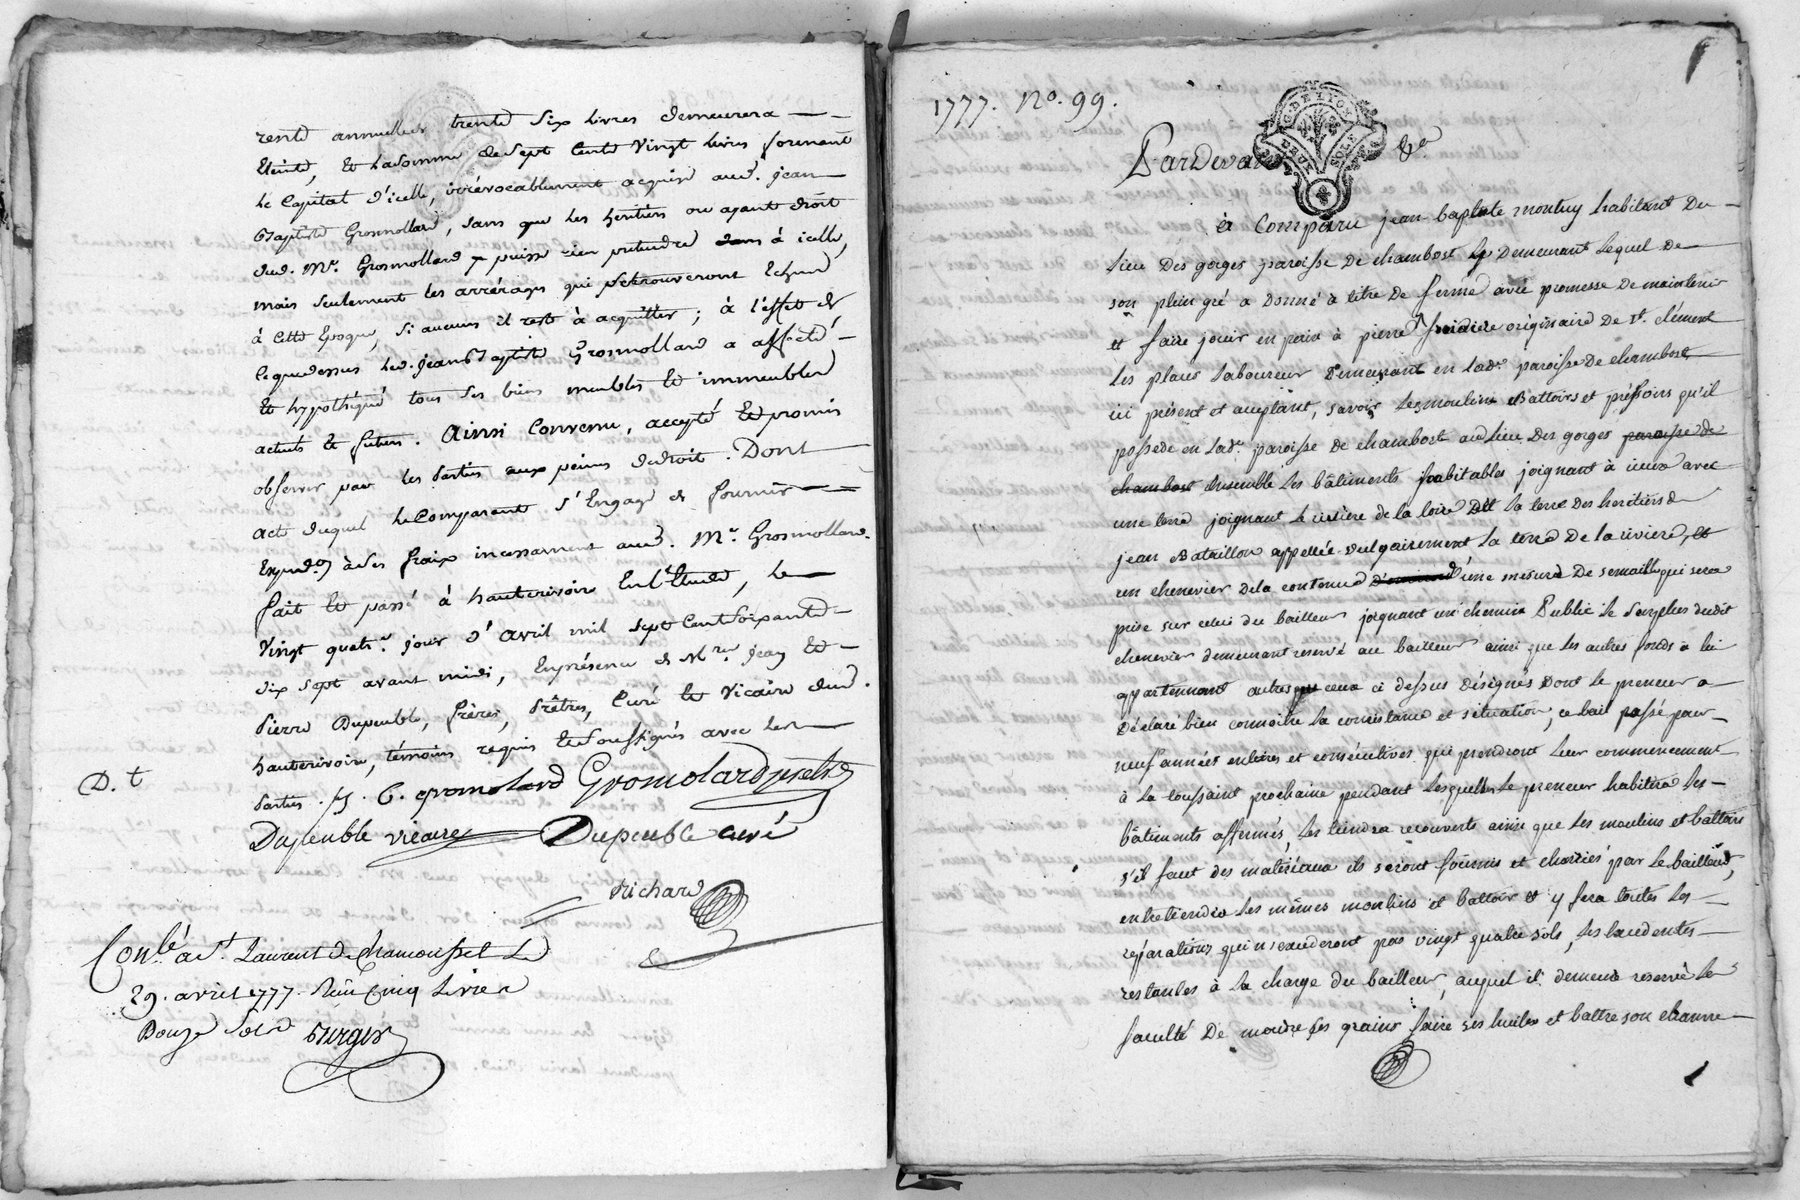 rente annuelle trente six livres demeurera
éteinte, et la somme de sept cents vingt livres formant
le capital d'icelle, irrévocablement acquise aud. jean
Baptiste Grosmollard, sans que les héritiers ou ayants droit
dud. Mr. Grosmollard puisse rien prétendre à icelle,
mais seulement les arrérages qui se trouveront échus
à cette époque, si aucuns il reste à acquitter ; à l'effet de
ce que dessus led. jean Baptiste Grosmollard a affecté
et hypothéqué tous ses biens meubles et immeubles
actuels et futurs. Ainsi convenu, accepté et promis
observer par les parties aux peines de droit. Dont
acte duquel le comparant s'engage de fournir
expedon à ses fraix incessamment aud. Mr. Grosmollard.
fait et passé à hauterivoire en l'étude, le
vingt quatre jour d'avril mil sept cent soixante
dix sept avant midi, en présence de Mres jean et
pierre Dupeuble, frères, prêtres, curé et vicaire dud.
hauterivoire, témoins requis et soussignés avec les
D. t
parties. B. gromolard Gromolard
Dupeuble vicaire Dupeuble curé
Richard
Conlé à St. Laurent de Chamousset le
29. avril 1777. Reçu cinq livres
Douze sols
1777. No. 99.
Pardevant &c
G. DE LYON
DEUX SOLS
à comparu jean baptiste montuy habitant du
lieu des gorges paroisse de chambost y demeurant lequel de
son plein gré a donné à titre de ferme avec promesse de maintenir
et faire jouir en paix à pierre originaire de St. clément
les places laboureur demeurant en lade. paroisse de chambost
ici présent et acceptant, savoir les moulins Battoirs et préssoirs qu'il
possede en lade. paroisse de chambost au lieu des gorges paroisse de
chambost ensemble les bâtiments habitables joignant à iceux avec
une terre joignant la riviere de la loire et la terre des heritiers de
jean Bataillon appellée vulgairement la terre de la riviere, et
un chenevier de la contenue d'une mesure de semaille qui sera
prise sur celui du bailleur joignant un chemin Public le surplus dudit
chenevier demeurant reservé au bailleur ainsi que les autres fonds à lui
appartenant autres que ceux ci dessus désignés dont le preneur a
déclaré bien connoitre la consistance et situation, ce bail passé pour
neuf années entieres et consécutives qui prendront leur commencement
à la toussaint prochaine pendant lesquelles le preneur habitera les
bâtiments affermés, les tiendra recouverts ainsi que les moulins et battoirs
s'il faut des matériaux ils seront fournis et charriés par le bailleur,
entretiendra les mêmes moulins et battoir et y fera toutes les
réparations qui n'excederont pas vingt quatre sols, les excedentes
restantes à la charge du bailleur, auquel il demeure reservé la
faculté de moudre ses grains faire ses huiles et battre son chanvre